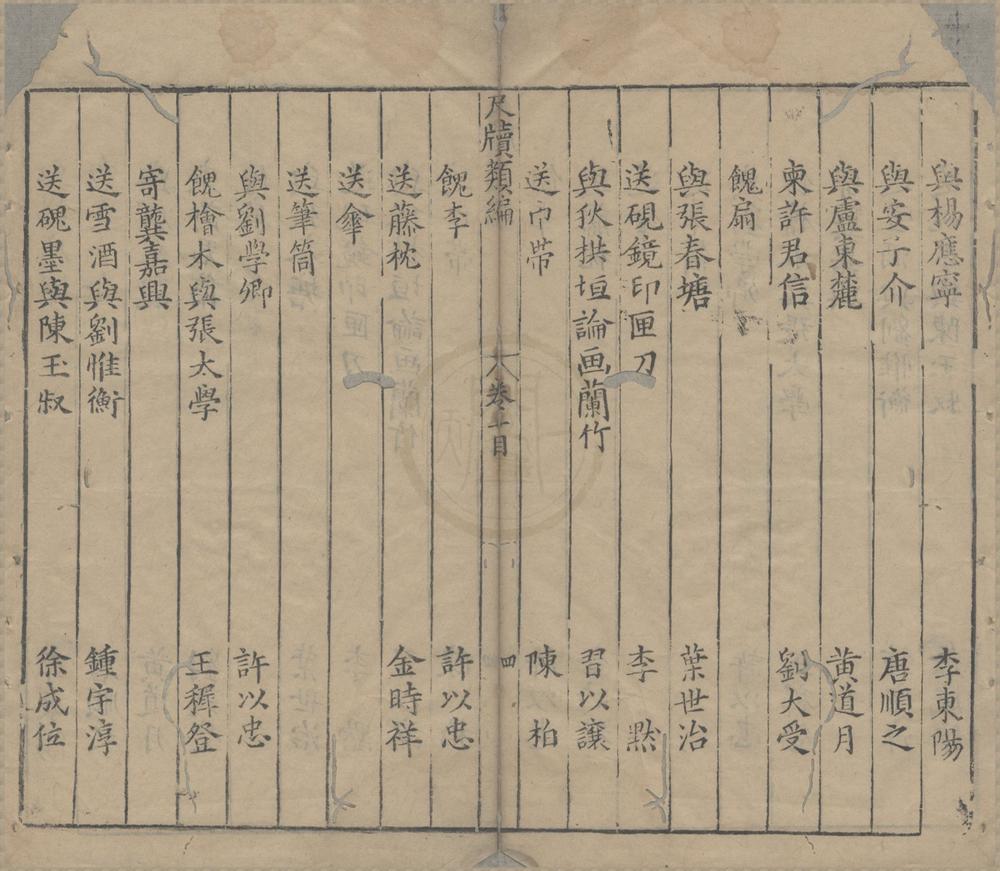 與楊應寧 李東陽
與安子介 唐順之
與盧東麓 黃道月
柬許君信 劉大受
餽扇
與張春塘 葉世治
送硯鏡印匣刀 李默
與狄拱垣論画蘭竹 習以讓
送巾帶 陳柏
尺牘類編 卷十目 四
餽李 許以忠
送藤枕 金時祥
送傘
送筆筒
與劉学卿 許以忠
餽檜木與張大學 王穉登
寄龔嘉興
送雪酒與劉惟衡 鍾宇淳
送硯墨與陳玉叔 徐成位